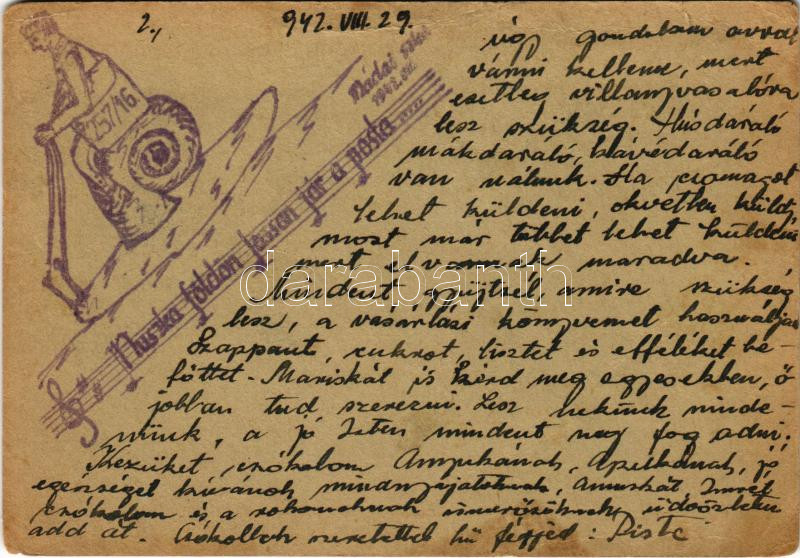 2.,
942. VIII. 29.
257/16
Nádas
1942. VII.
Muszka földön lassan jár a posta....
úgy gondoltam avval
várni kellene, mert
esetleg villanyvasalóra
lesz szükség. Húsdaráló
mákdaráló, kávédaráló
van nálunk. Ha csomagot
lehet küldeni, okvetlen küldj
most már többet lehet küldeni
mert el vannak maradva.
Mindent gyűjtsél, amire szükség
lesz, a vásárlási könyvemet használjad
Szappant, cukrot, lisztet és efféléket be-
főttet. Mariskát is kérd meg egyesekben, ő
jobban tud szerezni. Lesz nekünk minde-
nünk, a jó Isten mindent meg fog adni.
Kezüket csókolom Anyukának, Apukának, jó
egészséget kívánok mindnyájatoknak, Annuskát, Imrét
csókolom és a rokonoknak ismerősöknek üdvözletem
add át. Csókollak szeretettel hű férjed: Piste
darabanth